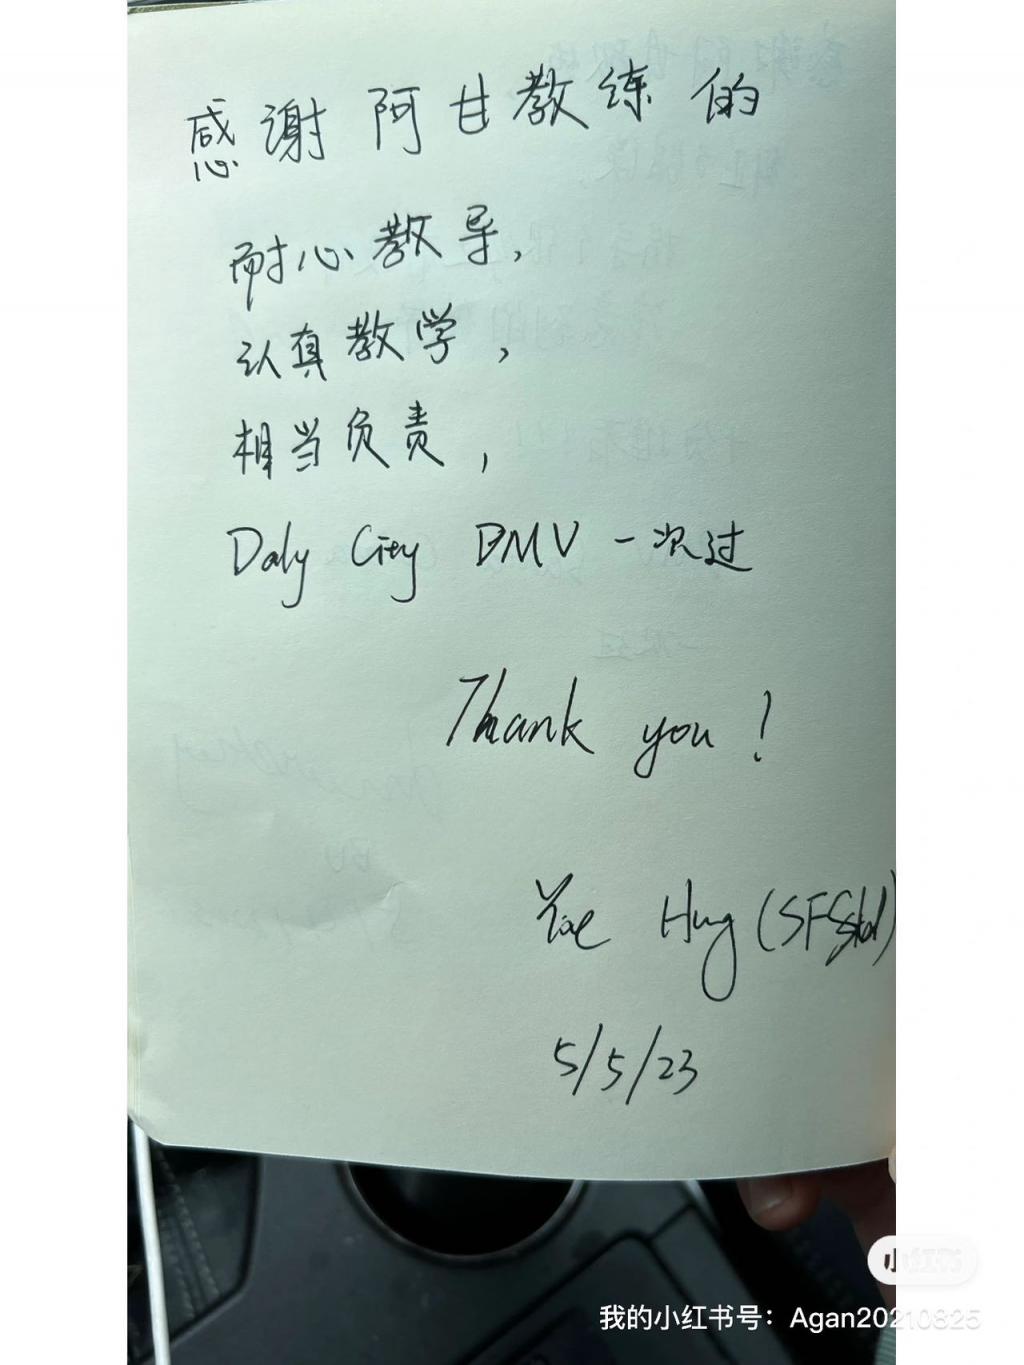 感谢阿甘教练的
耐心教导,
认真教学,
相当负责,
Daly City DMV 一次过
Thank you!
5/5/23
小红书
我的小红书号：Agan20210825